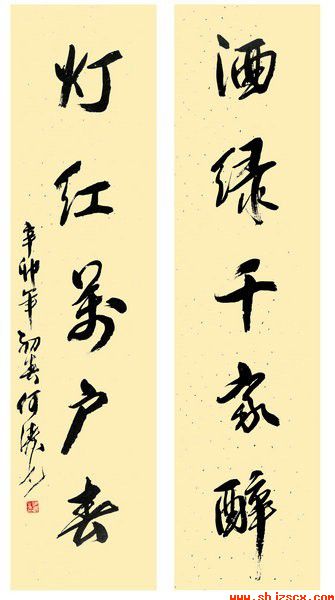 酒绿千家醉
灯红萬户春
辛卯年初春何涛
www.shjzscx.com